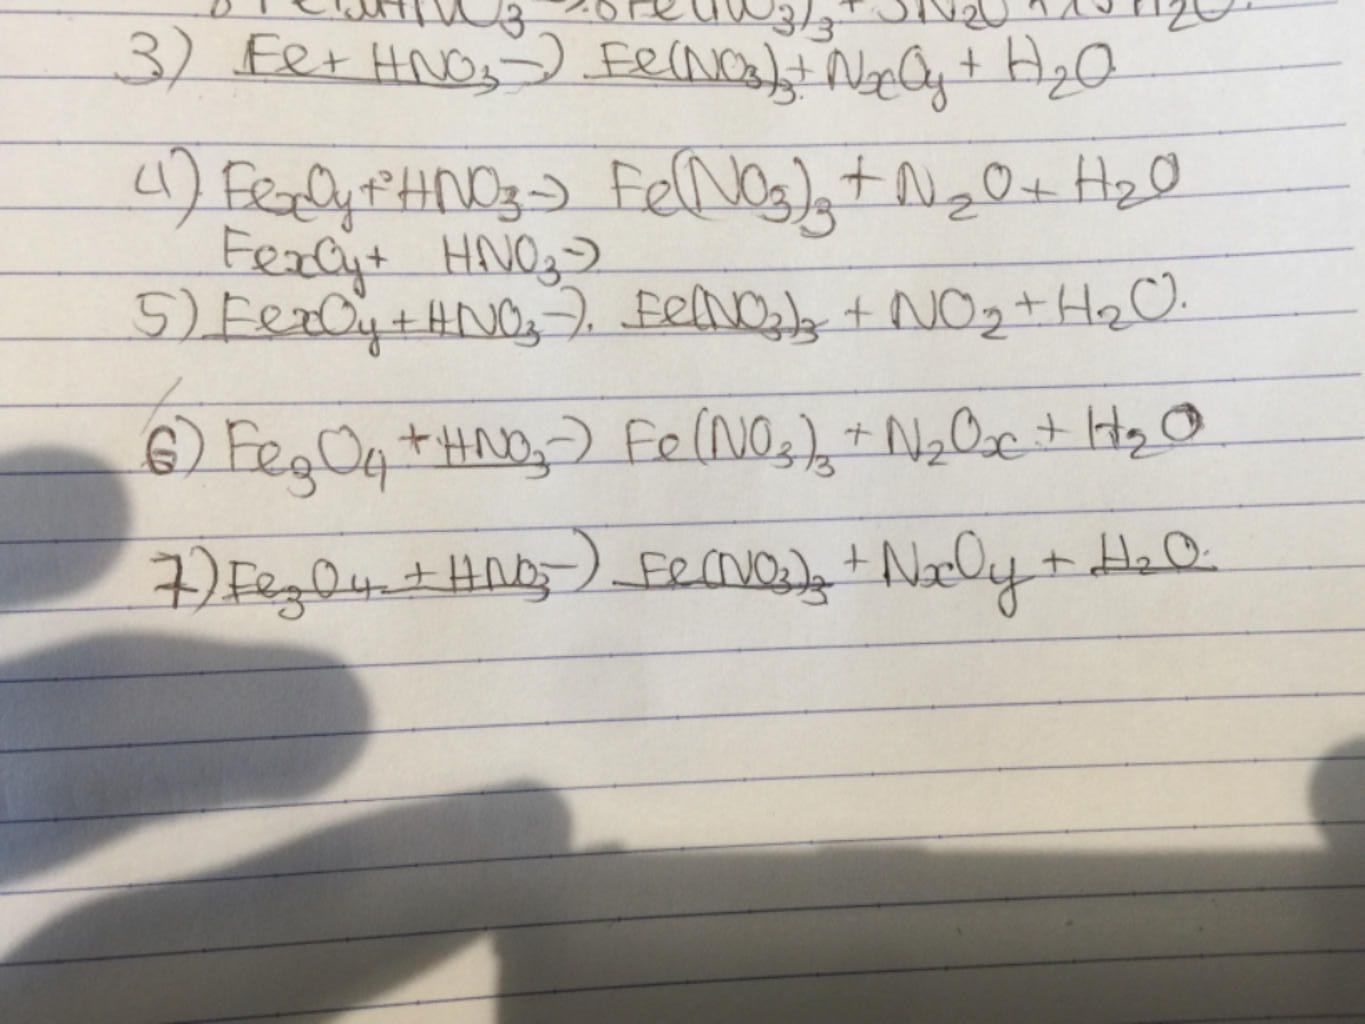 3) Fe + HNO3 -> Fe(NO3)3 + NxOy + H2O
4) FexOy + HNO3 -> Fe(NO3)3 + N2O + H2O
FexOy + HNO3 ->
5) FexOy + HNO3 -> Fe(NO3)3 + NO2 + H2O.
6) Fe3O4 + HNO3 -> Fe(NO3)3 + N2Ox + H2O
7) Fe3O4 + HNO3 -> Fe(NO3)3 + NxOy + H2O.